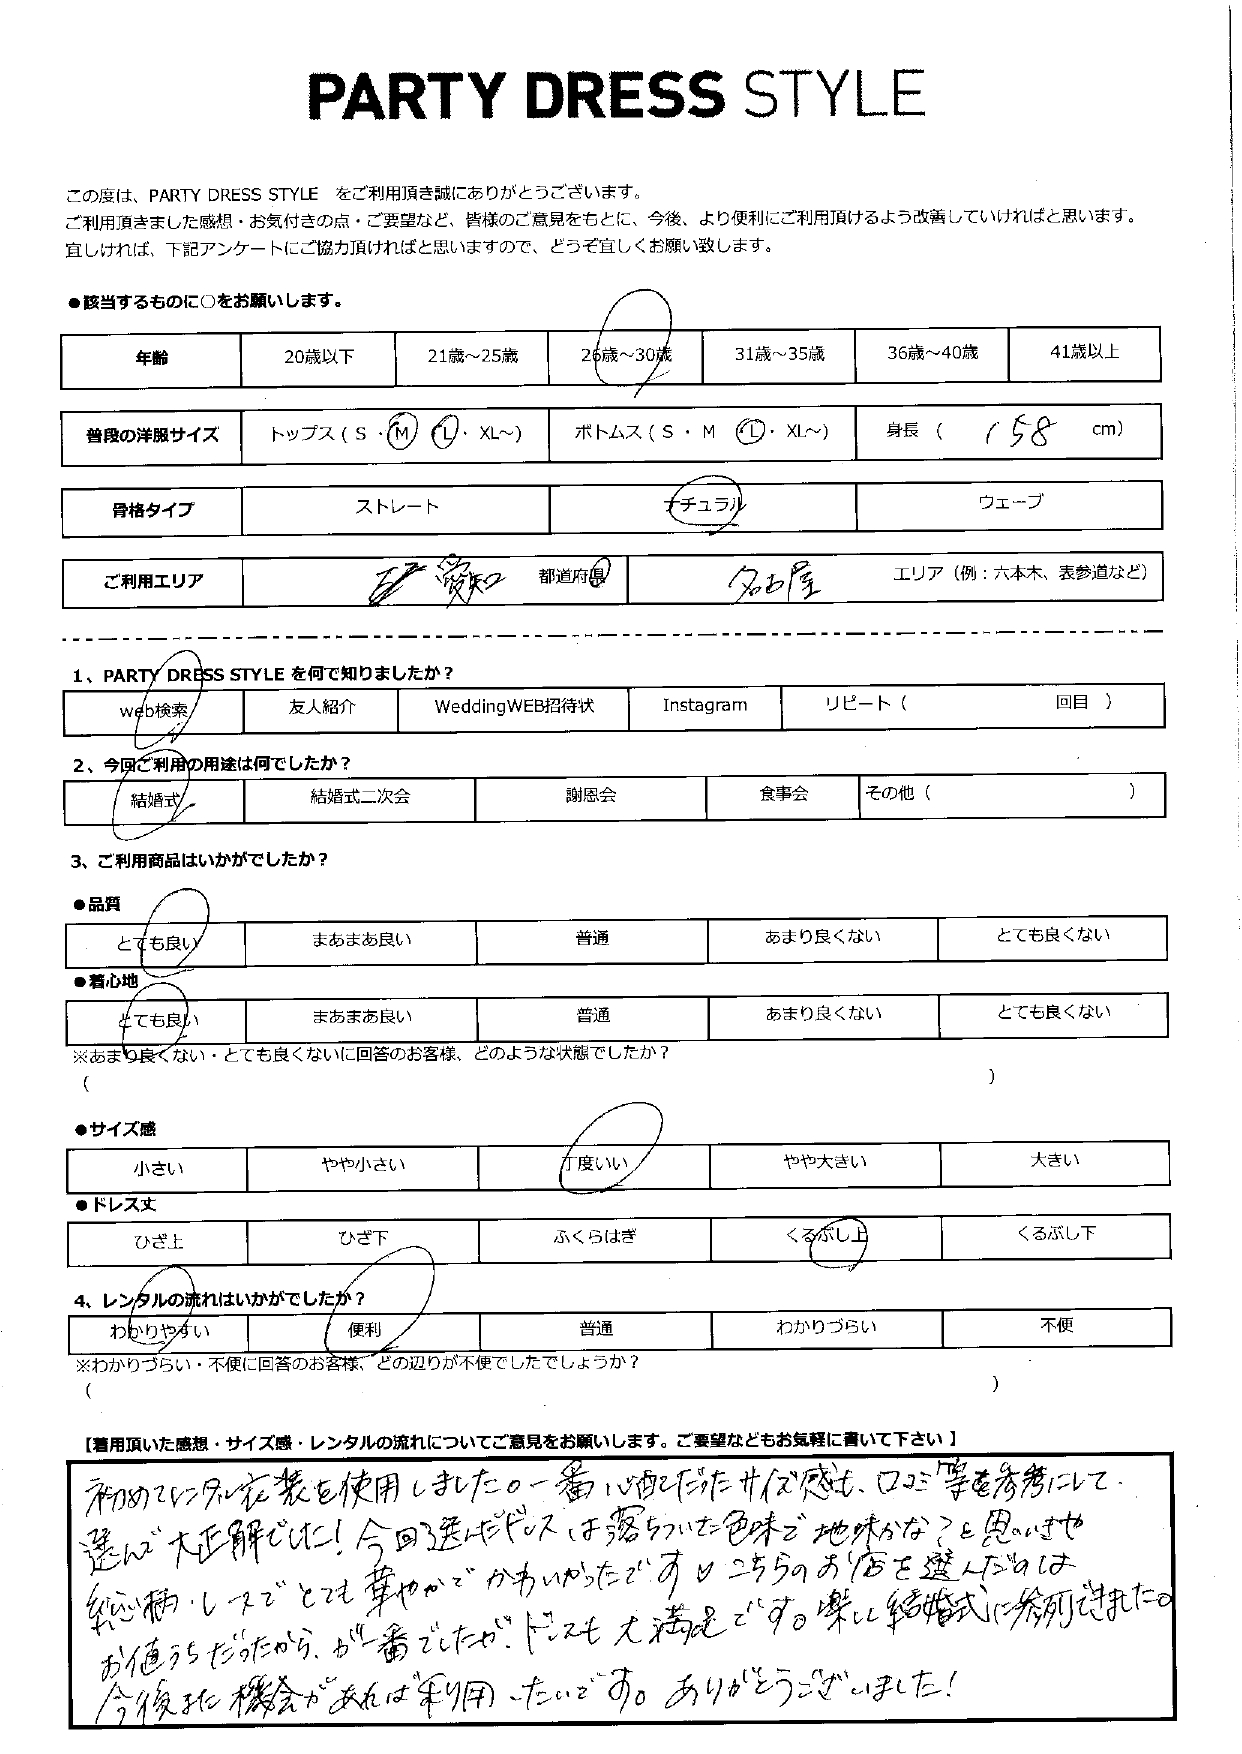 PARTY DRESS STYLE
この度は、PARTY DRESS STYLE をご利用頂き誠にありがとうございます。
ご利用頂きました感想・お気付きの点・ご要望など、皆様のご意見をもとに、今後、より便利にご利用頂けるよう改善していければと思います。
宜しければ、下記アンケートにご協力頂ければと思いますので、どうぞ宜しくお願い致します。
●該当するものに○をお願いします。
年齢 20歳以下 21歳～25歳 26歳～30歳 31歳～35歳 36歳～40歳 41歳以上
普段の洋服サイズ トップス ( S ・ M ・ L ・ XL～) ボトムス ( S ・ M ・ L ・ XL～) 身長 ( 158 cm)
骨格タイプ ストレート ナチュラル ウェーブ
ご利用エリア 愛知 都道府県 名古屋 エリア（例：六本木、表参道など）
1、PARTY DRESS STYLE を何で知りましたか？
web検索 友人紹介 WeddingWEB招待状 Instagram リピート ( 回目 )
2、今回ご利用の用途は何でしたか？
結婚式 結婚式二次会 謝恩会 食事会 その他 ( )
3、ご利用商品はいかがでしたか？
●品質
とても良い まあまあ良い 普通 あまり良くない とても良くない
●着心地
とても良い まあまあ良い 普通 あまり良くない とても良くない
※あまり良くない・とても良くないに回答のお客様、どのような状態でしたか？
( )
●サイズ感
小さい やや小さい 丁度いい やや大きい 大きい
●ドレス丈
ひざ上 ひざ下 ふくらはぎ くるぶし上 くるぶし下
4、レンタルの流れはいかがでしたか？
わかりやすい 便利 普通 わかりづらい 不便
※わかりづらい・不便に回答のお客様、どの辺りが不便でしたでしょうか？
( )
【着用頂いた感想・サイズ感・レンタルの流れについてご意見をお願いします。ご要望などもお気軽に書いて下さい】
初めてレンタル衣装を使用しました。一番心配だったサイズ感も、口コミ等を参考にして
選んで大正解でした！今回選んだドレスは落ちついた色味で地味かな？と思いきや
総柄レースでとても華やかでかわいかったです♡こちらのお店を選んだのは
お値うちだったから、が一番でしたが、ドレスも大満足です。楽しく結婚式に参列できました。
今後また機会があれば利用したいです。ありがとうございました！